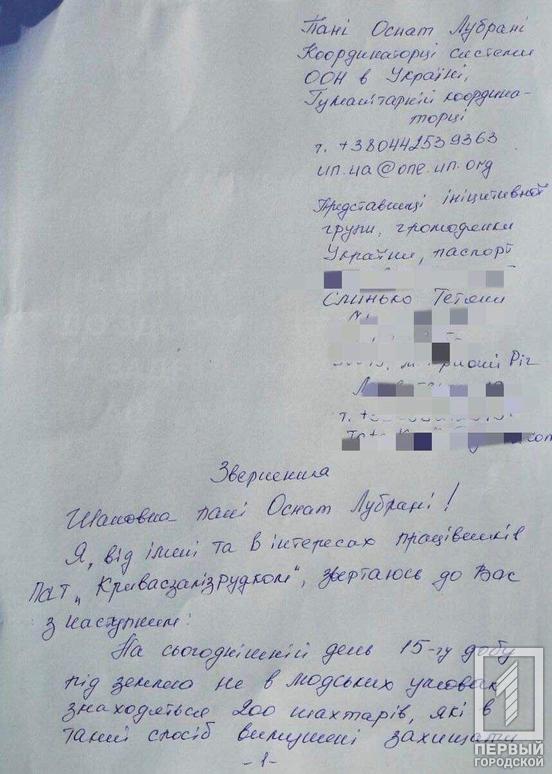 Пані Оснат Лубрані
Координаторці системи
ООН в Україні,
Гуманітарній координа-
торці
т. +380442539363
un.ua@one.un.org
Представниці ініціативної
групи, громадянки
України, паспорт
Слинько Тетяни
Ріг
т. +
Звернення
Шановна пані Оснат Лубрані!
Я, від імені та в інтересах працівників
ПАТ „Кривбасзалізрудком", звертаюсь до Вас
з наступним:
На сьогоднішній день 15-ту добу
під землею не в людських умовах
знаходяться 200 шахтарів, які в
такий спосіб вимушені захищати
-1-
1
ПЕРВЫЙ
ГОРОДСКОЙ